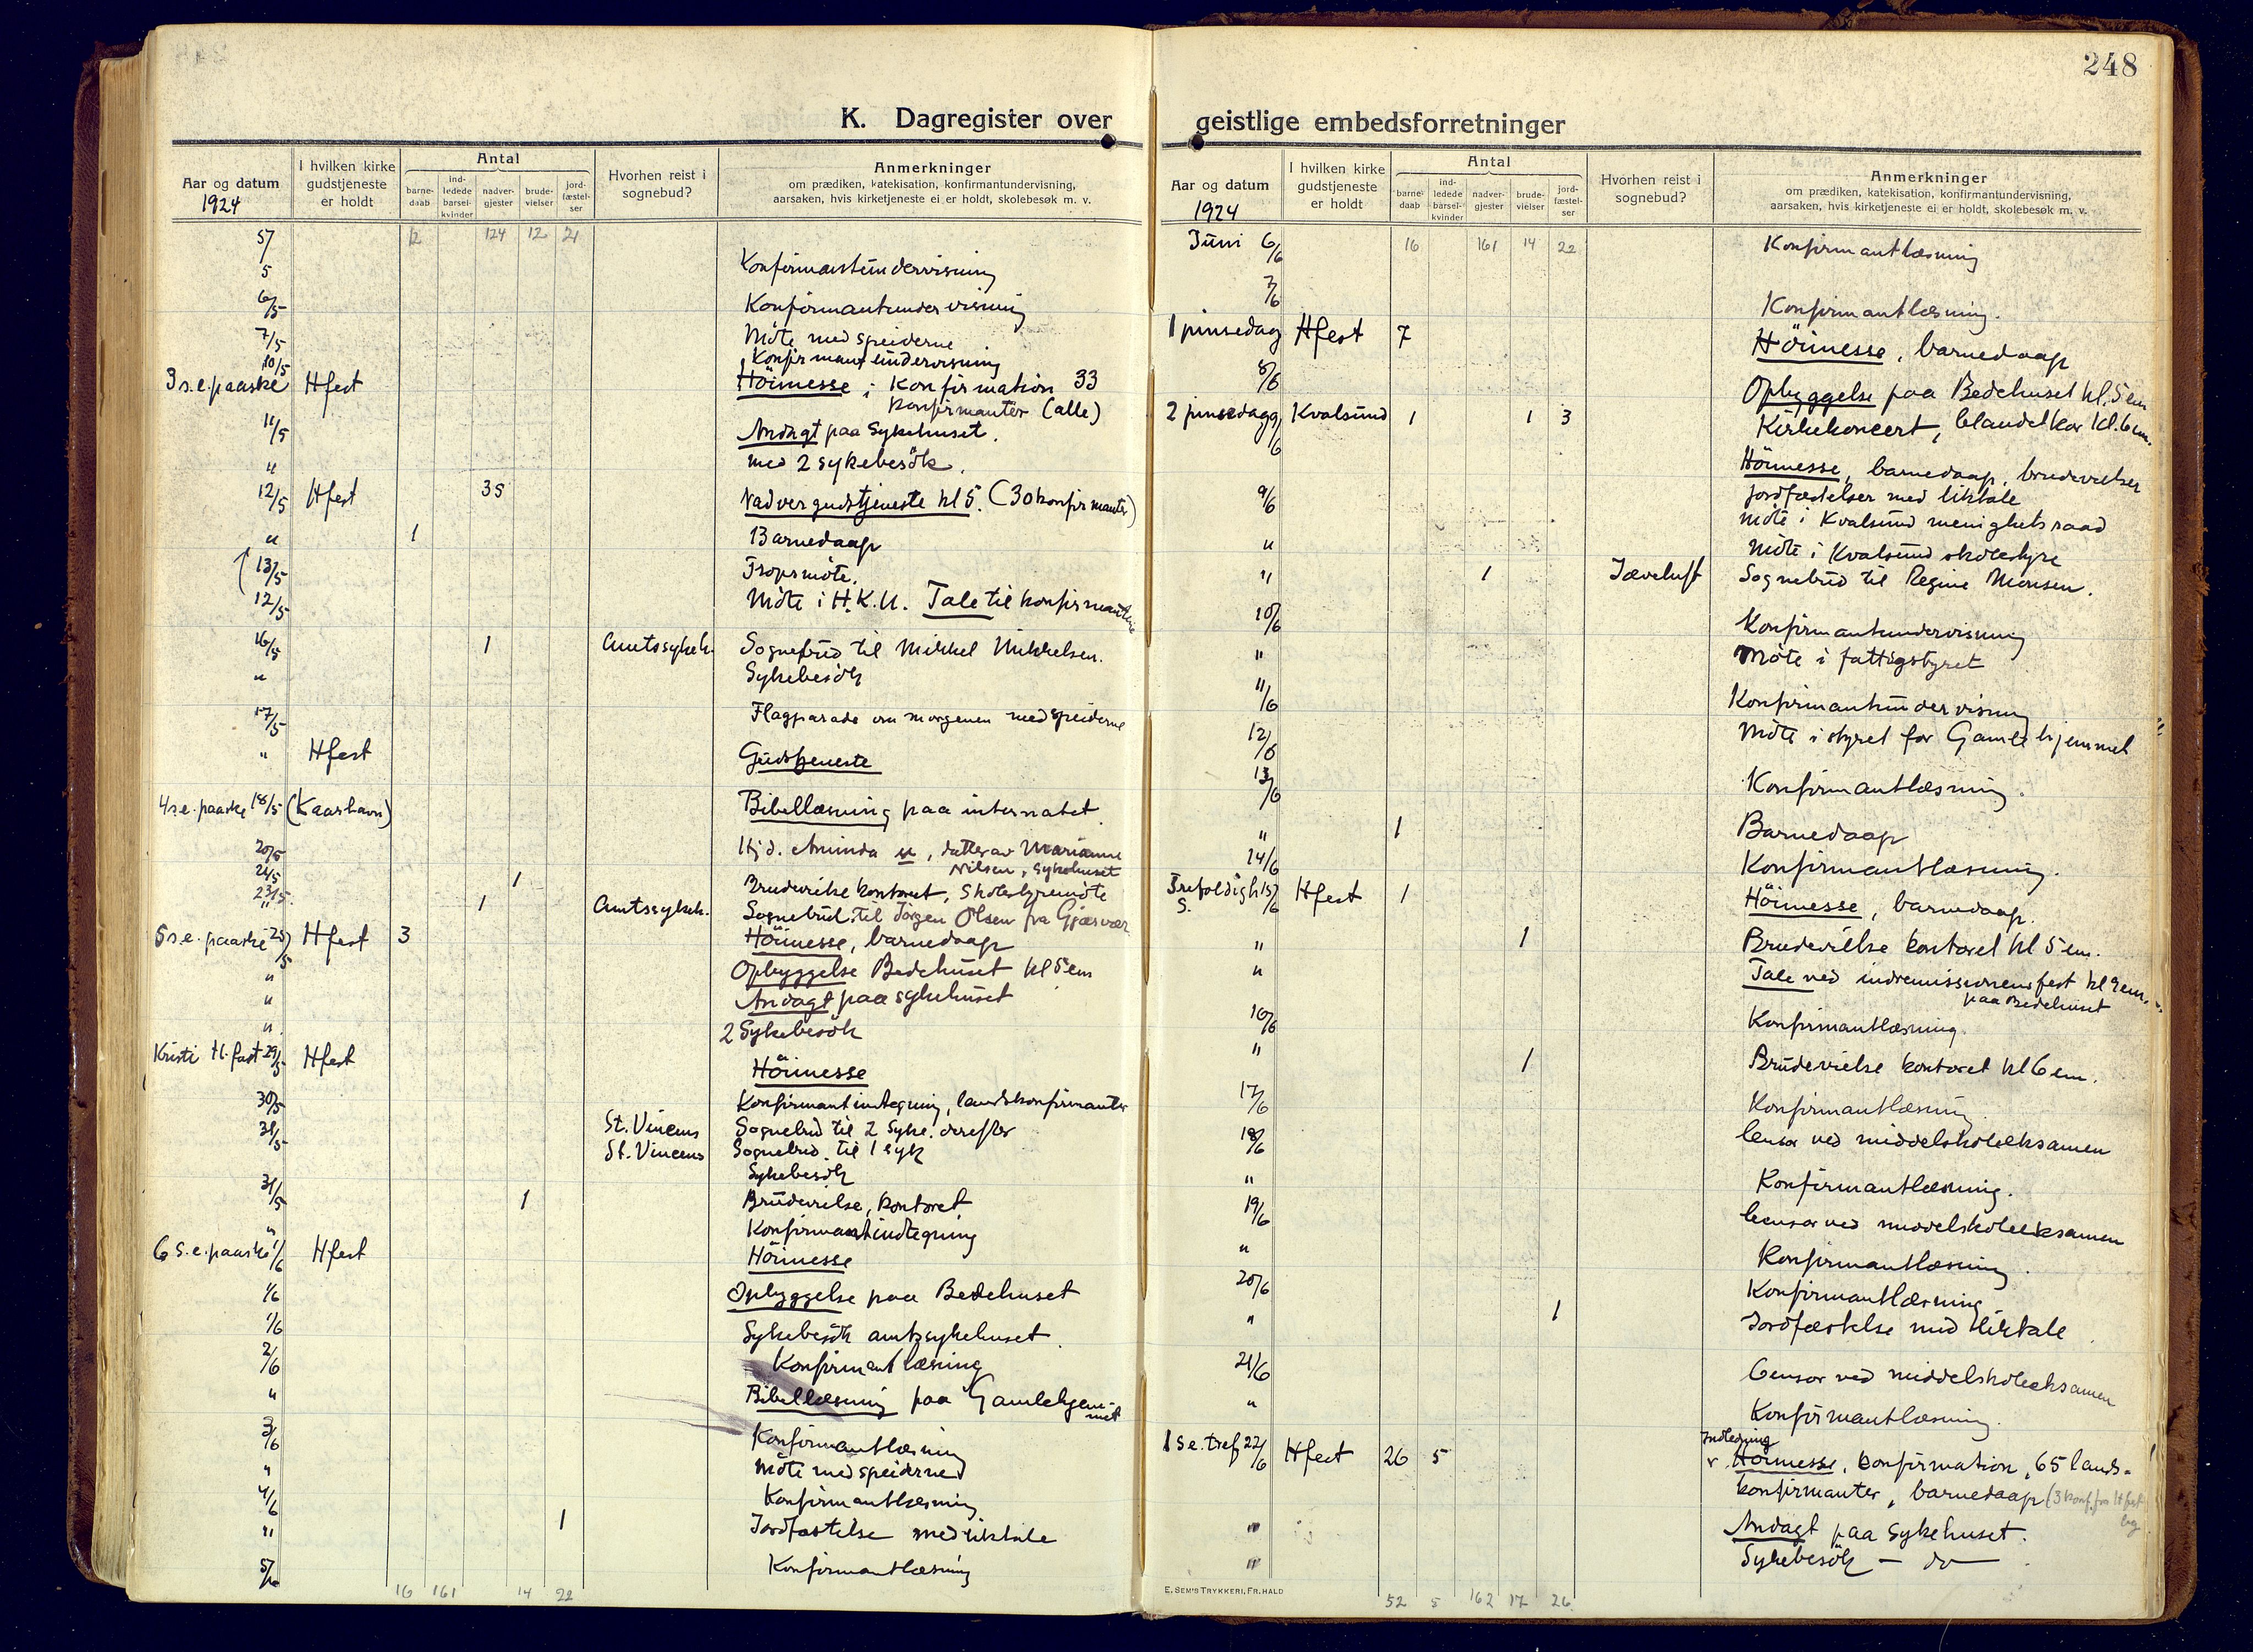 248
K. Dagregister over geistlige embedsforretninger
Aar og datum
1924
I hvilken kirke gudstjeneste er holdt
Antal
barne-daab
ind-ledede barsel-kvinder
nadver-gjester
brude-vielser
jord-fæstel-ser
Hvorhen reist i sognebud?
Anmerkninger
om prædiken, katekisation, konfirmantundervisning,
aarsaken, hvis kirketjeneste ei er holdt, skolebesøk m. v.
12 124 12 21
5 Konfirmantundervisning
6/5 Konfirmantundervisning
7/5 Möte med speiderne
10/5 Konfirmantundervisning
3 s.e. paaske Hfest Höimesse; Konfirmation 33
konfirmanter (alle)
11/5 Andagt paa Sykehuset.
" med 2 sykebesök.
12/5 Hfest 35 Nadvergudstjeneste kl 5. (30 konfirmanter)
" 1 Barnedaap
13/5
12/5 Möte i H.K.U. Tale til konfirmantene
16/5 1 Amtssykeh. Sognebud til Mikkel Mikkelsen.
" Sykebesök
17/5 Flagparade om morgenen med speiderne
" Hfest Gudstjeneste
4 s.e. paaske 18/5 (Kaarhavn) Bibellæsning paa internatet.
20/5 Hjd. Aminda u, datter av Marianne
Nilsen, Sykehuset
24/5 1 Brudevielse kontoret, Skolestyremöte
" 1 Amtssykeh. Sognebud til Jörgen Olsen fra Gjesvær
5 s.e. paaske 25/5 Hfest 3 Höimesse, barnedaap
" Opbyggelse Bedehuset kl 5 em
" Andagt paa sykehuset
" 2 Sykebesök
Kristi H. fart 29/5 Hfest Höimesse
30/5 Konfirmantindtegning, landskonfirmanter
31/5 St. Vincens Sognebud til 2 syke. derefter
St. Vincens Sognebud til 1 syk
Sykebesök
31/5 1 Brudevielse, kontoret
" Konfirmantindtegning
6 s.e. paaske 1/6 Hfest Höimesse
1/6 Opbyggelse paa Bedehuset
1/6 Sykebesök amtssykehuset.
2/6 Konfirmantlæsning
" Bibellæsning paa Gamlehjem-
met
3/6 Konfirmantlæsning
" Möte med speiderne
4/6 Konfirmantlæsning
" 1 Jordfæstelse med liktale
5/6 Konfirmantlæsning
16 161 14 22
Aar og datum
1924
I hvilken kirke gudstjeneste er holdt
Antal
barne-daab
ind-ledede barsel-kvinder
nadver-gjester
brude-vielser
jord-fæstel-ser
Hvorhen reist i sognebud?
Anmerkninger
om prædiken, katekisation, konfirmantundervisning,
aarsaken, hvis kirketjeneste ei er holdt, skolebesøk m. v.
Juni 6/6 16 161 14 22 Konfirmantlæsning
7/6 Konfirmantlæsning.
1 pinsedag Hfest 7 Höimesse, barnedaap
8/6 Opbyggelse paa Bedehuset kl. 5 em
Kirkekoncert, blandet kor kl. 6 em.
2 pinsedag 9/6 Kvalsund 1 1 3 Höimesse, barnedaap, brudevielser
jordfæstelser med liktale
9/6 Möte i Kvalsund menighetsraad
" Möte i Kvalsund skolestyre
" 1 Sognebud til Regine Monsen.
10/6 Konfirmantundervisning
" Möte i fattigstyret
11/6 Konfirmantundervisning
12/6 Möte i styret for Gamlehjemmet
13/6 Konfirmantlæsning.
" 1 Barnedaap
14/6 Konfirmantlæsning.
Trefoldigh. 15/6 Hfest 1 Höimesse, barnedaap.
S.
" 1 Brudevielse kontoret kl 5 em.
" Tale ved indremissionens fest kl 9 em.
paa Bedehuset
16/6 Konfirmantlæsning.
" 1 Brudevielse kontoret kl 6 em.
17/6 Konfirmantlæsning.
18/6 Censor ved middelskoleeksamen
" Konfirmantlæsning.
19/6 Censor ved middelskoleeksamen
" Konfirmantlæsning.
20/6 Konfirmantlæsning
" 1 Jordfæstelse med liktale
21/6 Censor ved middelskoleeksamen
" Konfirmantlæsning.
Indledning
1 s.e. tref 22/6 Hfest 26 5 Höimesse, konfirmation, 65 lands-
konfirmanter, barnedaap (3 konf. fra Hfest
" Andagt paa Sykehuset.
" Sykebesök — do —
E. SEM'S TRYKKERI, FR.HALD
52 5 162 17 26